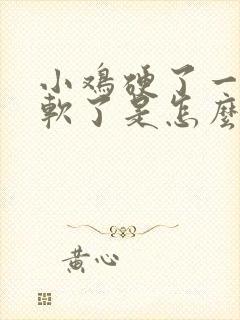 小鸡硬了一
軟了是怎麼
黄心